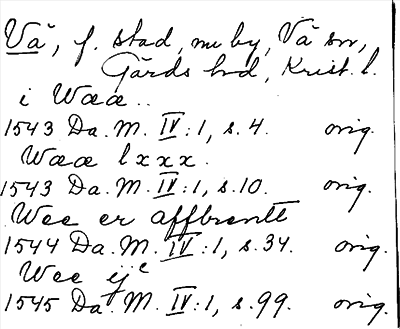 Vä, f. stad, nu by, Vä sn,
Gärds hd, Krist. l.
i Wææ..
1543 Da. M. IV:1, s. 4. orig.
Wææ lxxx.
1543 Da. M. IV:1, s. 10. orig.
Wee er affbrentt
1544 Da. M. IV:1, s. 34. orig.
Wee ijᶜ
1545 Da. M. IV:1, s. 99. orig.